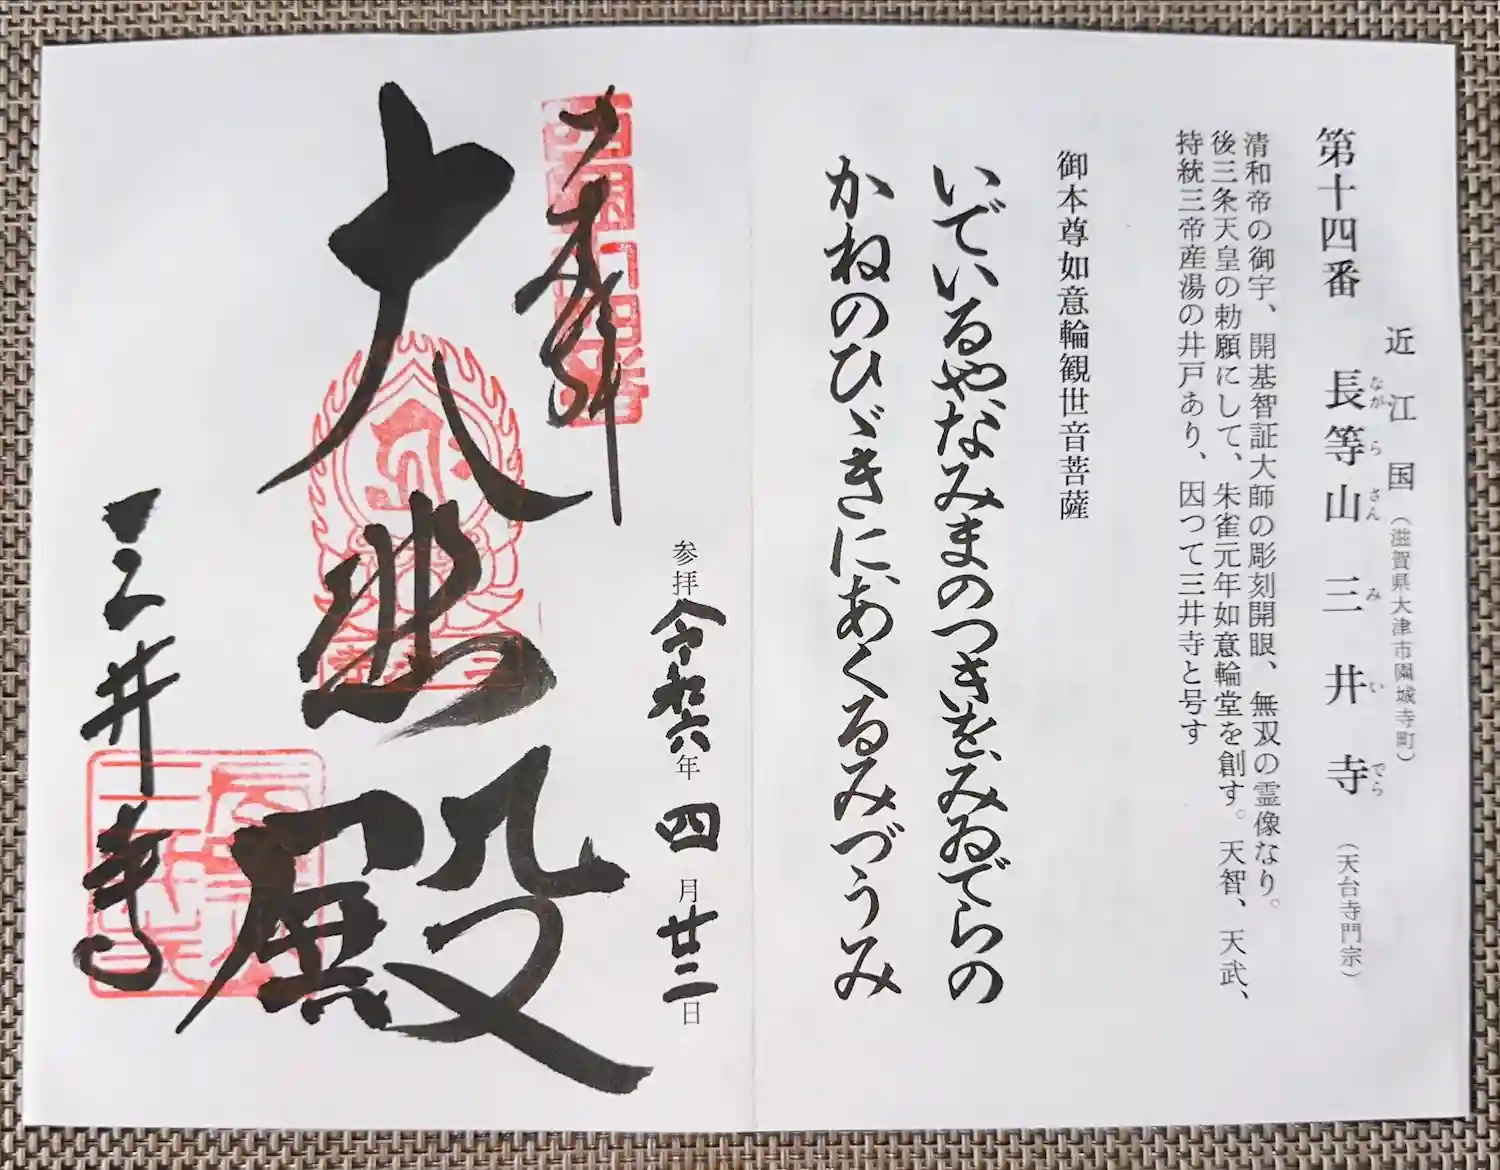 近江国（滋賀県大津市園城寺町）
第十四番 長等山 三井寺（天台寺門宗）
ながらさん みいでら
清和帝の御宇、開基智証大師の彫刻開眼、無双の霊像なり。
後三条天皇の勅願にして、朱雀元年如意輪堂を創す。天智、天武、
持統三帝産湯の井戸あり、因つて三井寺と号す
御本尊如意輪観世音菩薩
いでいるやなみまのつきを、みゐでらの
かねのひゞきに、あくるみづうみ
参拝 令和六年四月廿二日
奉拝
西国十四番
大悲殿
三井寺
三井寺